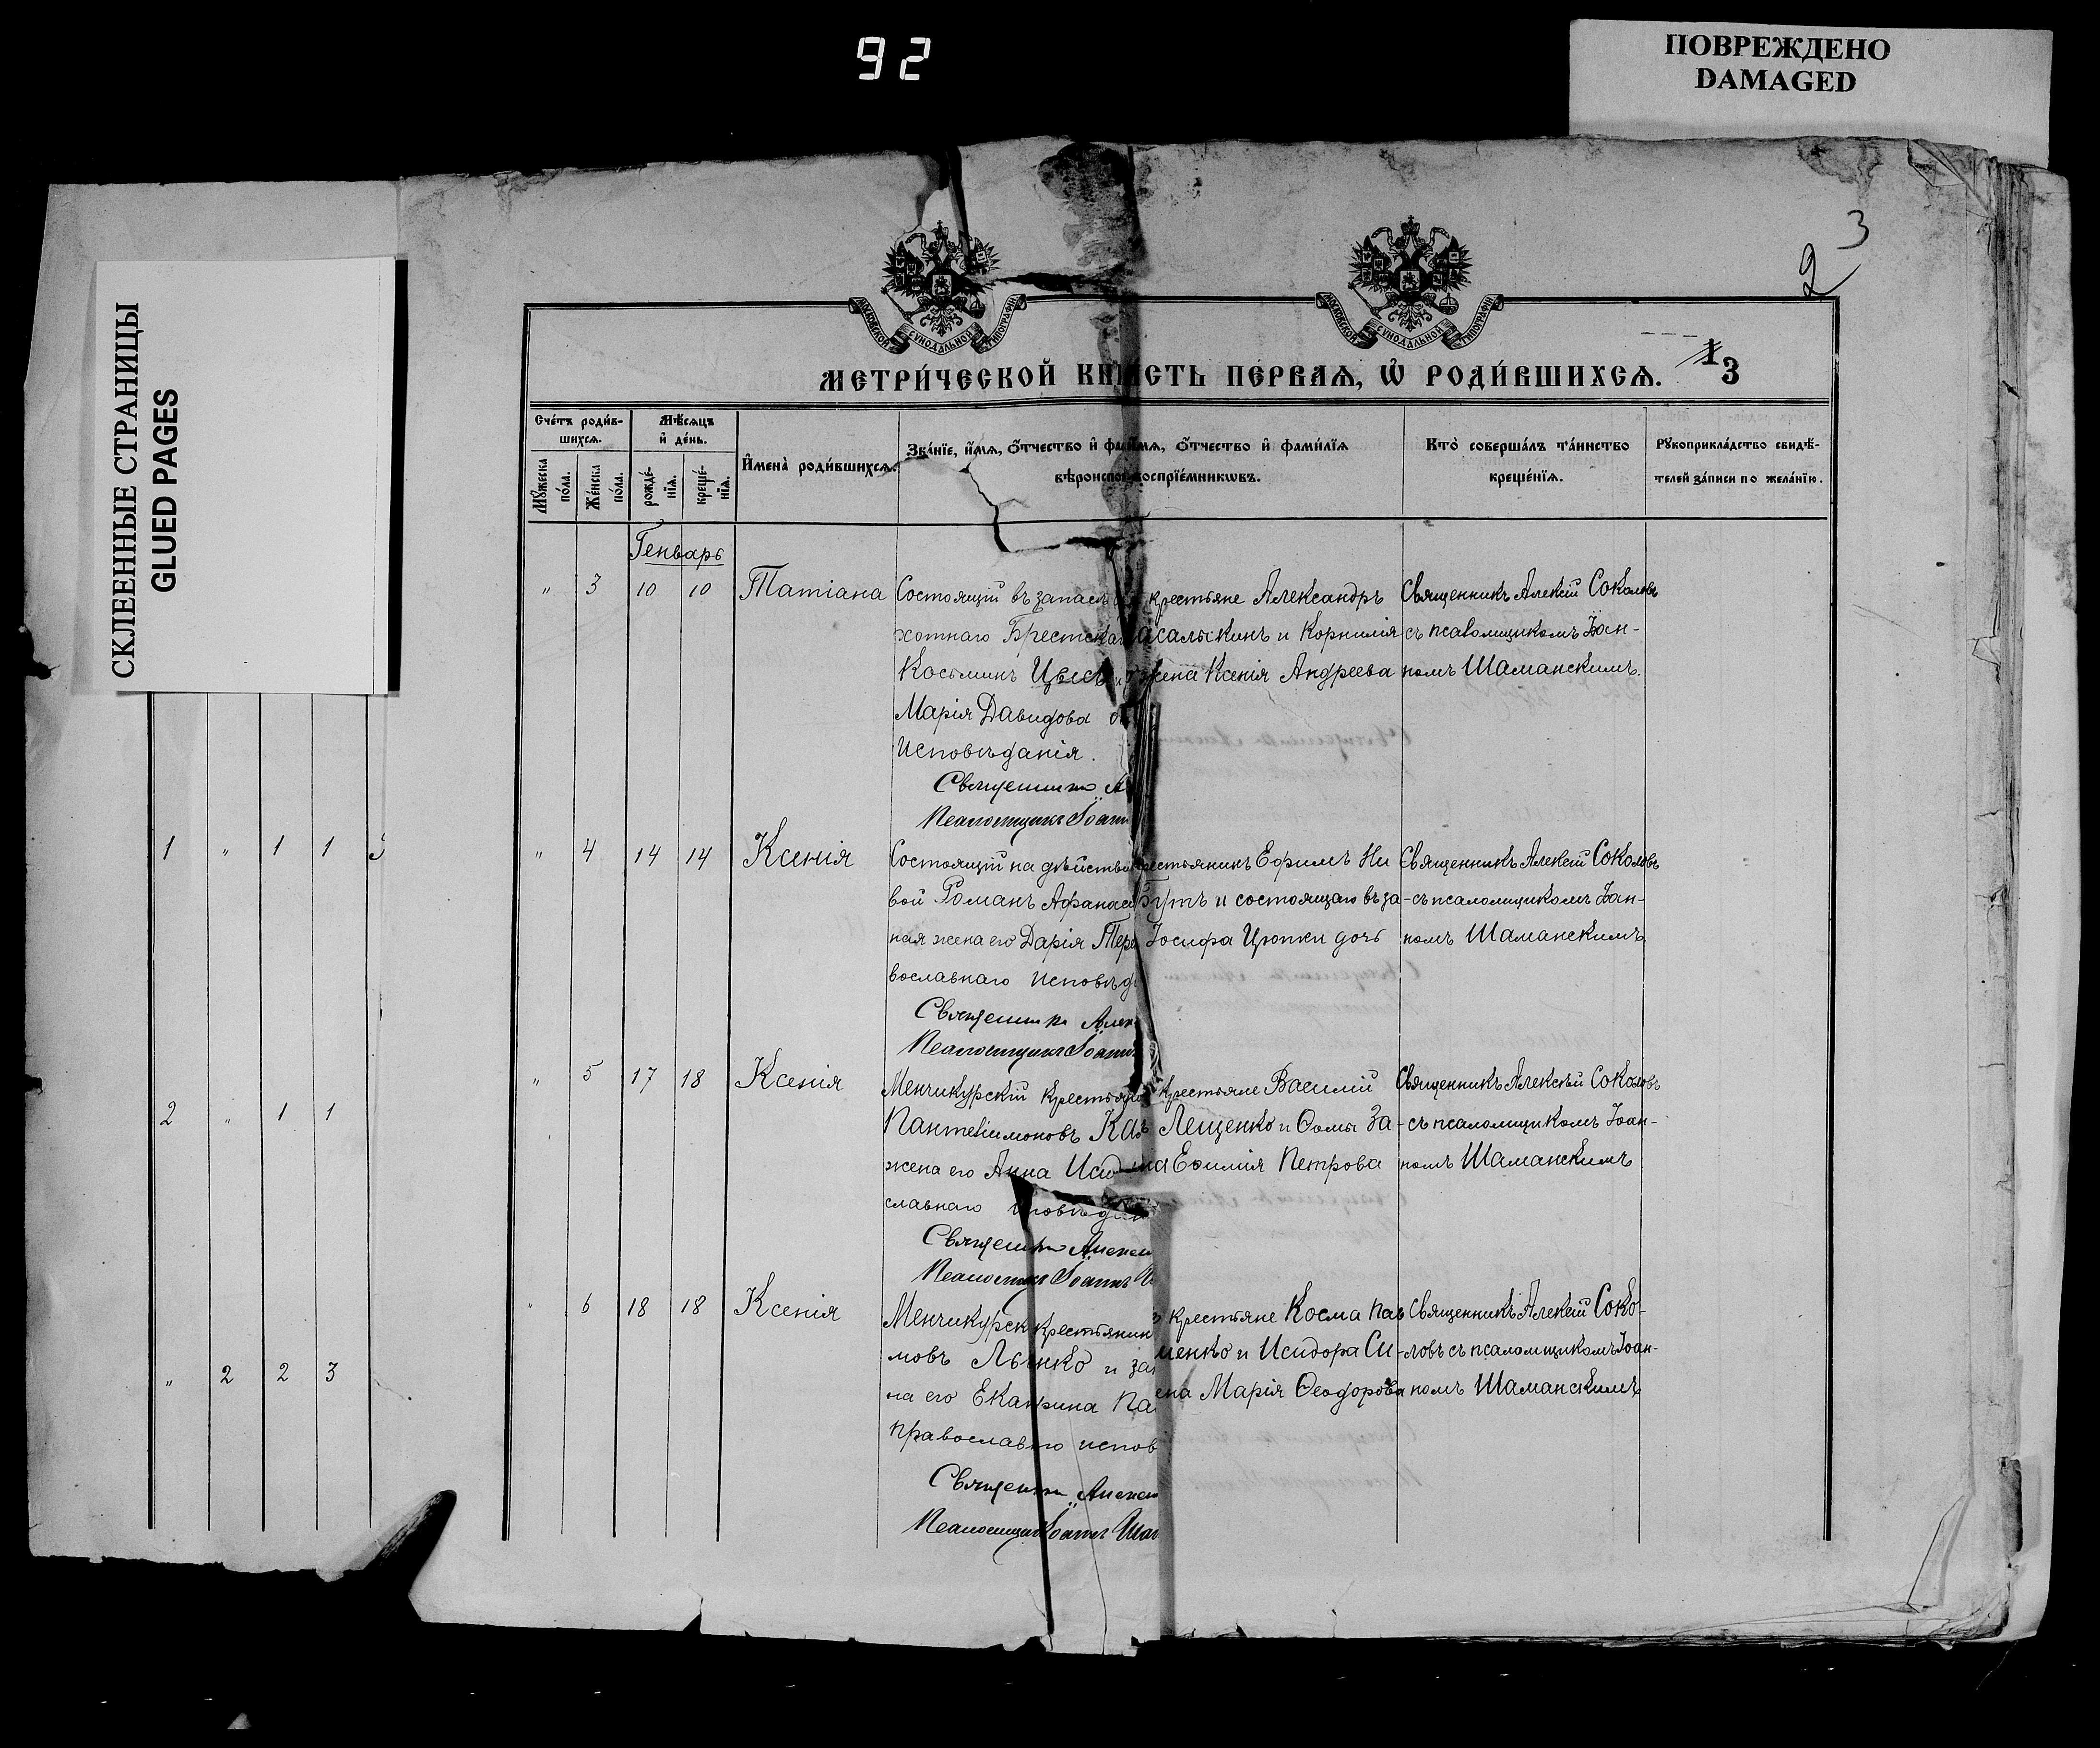 92
ПОВРЕЖДЕНО
DAMAGED
СКЛЕЕННЫЕ СТРАНИЦЫ
GLUED PAGES
2 3
МОСКОВСКОЙ СУНОДАЛЬНОЙ ТИПОГРАФІИ
МОСКОВСКОЙ СУНОДАЛЬНОЙ ТИПОГРАФІИ
МЕТРИ́ЧЕСКОЙ КНИ
СТЬ ПЕ́РВАѦ, Ѡ҆ РОДИ́ВШИХСѦ.
1 3
Сче́тъ роди́в-
шихсѧ.
Мѣ́сѧцъ
и҆ де́нь.
Мꙋ́жеска по́ла.
Же́нска по́ла.
рожде́-нїѧ.
креще́-нїѧ.
И҆мена̀ роди́вшихсѧ.
Зва́нїе, и҆́мѧ, ѻ҆́тчество и҆ фа
мѧ, ѻ҆́тчество и҆ фами́лїѧ
вѣроиспо
воспрїе́мникѡвъ.
Кто̀ соверша́лъ та́инство
креще́нїѧ.
Рꙋкоприкла́дство свидѣ́-
телей за́писи по жела́нїю.
Генварь
" 3 10 10 Татіана
Состоящій въ запасѣ
хотнаго Брестска
Косьминъ
Марія Давидова
исповѣданія.
Священникъ А
Псаломщикъ Іоанн
крестьяне Александръ
и Корнилія
жена Ксенія Андреева
Священникъ Алексій Соколовъ
съ псаломщикомъ Іоан-
номъ Шаманскимъ.
1 " 1 1
" 4 14 14 Ксенія
Состоящій на дѣйстви
вой Романъ Афанас
ная жена его Дарія Тер
вославнаго исповѣд
Священникъ Алек
Псаломщикъ Іоаннъ
рестьянинъ Ефимъ Ни
Бутъ и состоящаго въ за-
Іосифа Цюпки дочь
Священникъ Алексій Соколовъ
съ псаломщикомъ Іоан-
номъ Шаманскимъ
" 5 17 18 Ксенія
Менчикурскій крестьян
Пантелеимоновъ
жена его Анна Исид
славнаго исповѣдан
Священникъ Алексі
Псаломщикъ Іоаннъ Ш
крестьяне Василій
Лещенко и Ѳомы За-
на Евимія Петрова
Священникъ Алексѣй Соколовъ
съ псаломщикомъ Іоан-
номъ Шаманскимъ
2 " 1 1
" 6 18 18 Ксенія
Менчикурск крестьянин
мовъ и зак
на его Екатерина Па
православно испов
Священникъ Алексі
Псаломщикъ Іоаннъ Шам
крестьяне Косма Пав
менко и Исидора Си-
ена Марія Ѳеодорова
Священникъ Алексій Соко-
ловъ съ псаломщикомъ Іоан-
номъ Шаманскимъ
" 2 2 3